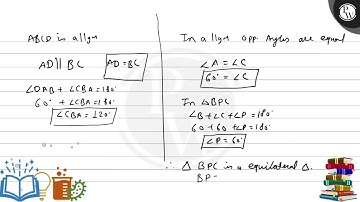 ABCD is a llgm
AD || BC
AD = BC
∠DAB + ∠CBA = 180°
60° + ∠CBA = 180°
∠CBA = 120°
In a llgm opp. angles are equal
∠A = ∠C
60° = ∠C
In △BPC
∠B + ∠C + ∠P = 180°
60 + 60 + ∠P = 180°
∠P = 60°
∴ △ BPC is a equilateral △.
BP =